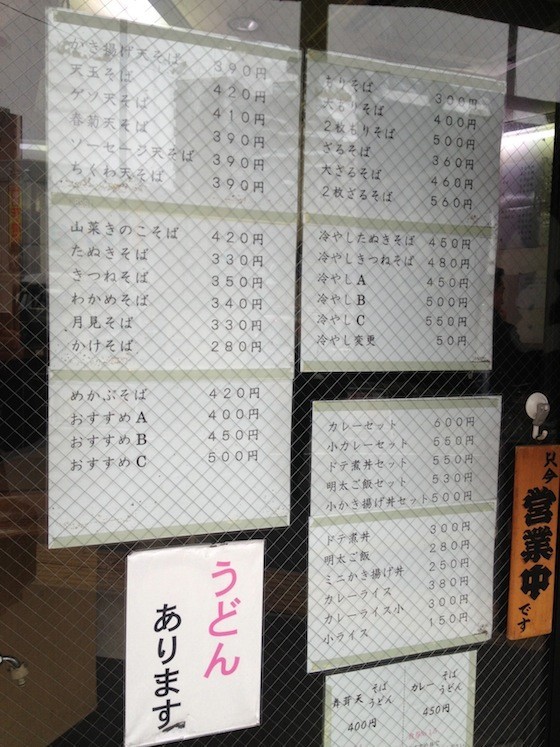 かき揚げ天そば 390円
天玉そば 420円
ゲソ天そば 410円
春菊天そば 390円
ソーセージ天そば 390円
ちくわ天そば 390円
山菜きのこそば 420円
たぬきそば 330円
きつねそば 350円
わかめそば 340円
月見そば 330円
かけそば 280円
めかぶそば 420円
おすすめA 400円
おすすめB 450円
おすすめC 500円
うどん
あります
もりそば 300円
大もりそば 400円
2枚もりそば 500円
ざるそば 360円
大ざるそば 460円
2枚ざるそば 560円
冷やしたぬきそば 450円
冷やしきつねそば 480円
冷やしA 450円
冷やしB 500円
冷やしC 550円
冷やし変更 50円
カレーセット 600円
小カレーセット 550円
ドテ煮丼セット 550円
明太ご飯セット 530円
小かき揚げ丼セット 500円
ドテ煮丼 300円
明太ご飯 280円
ミニかき揚げ丼 250円
カレーライス 380円
カレーライス小 300円
小ライス 150円
舞茸天 そば うどん
400円
カレー そば うどん
450円
只今
営業中
です